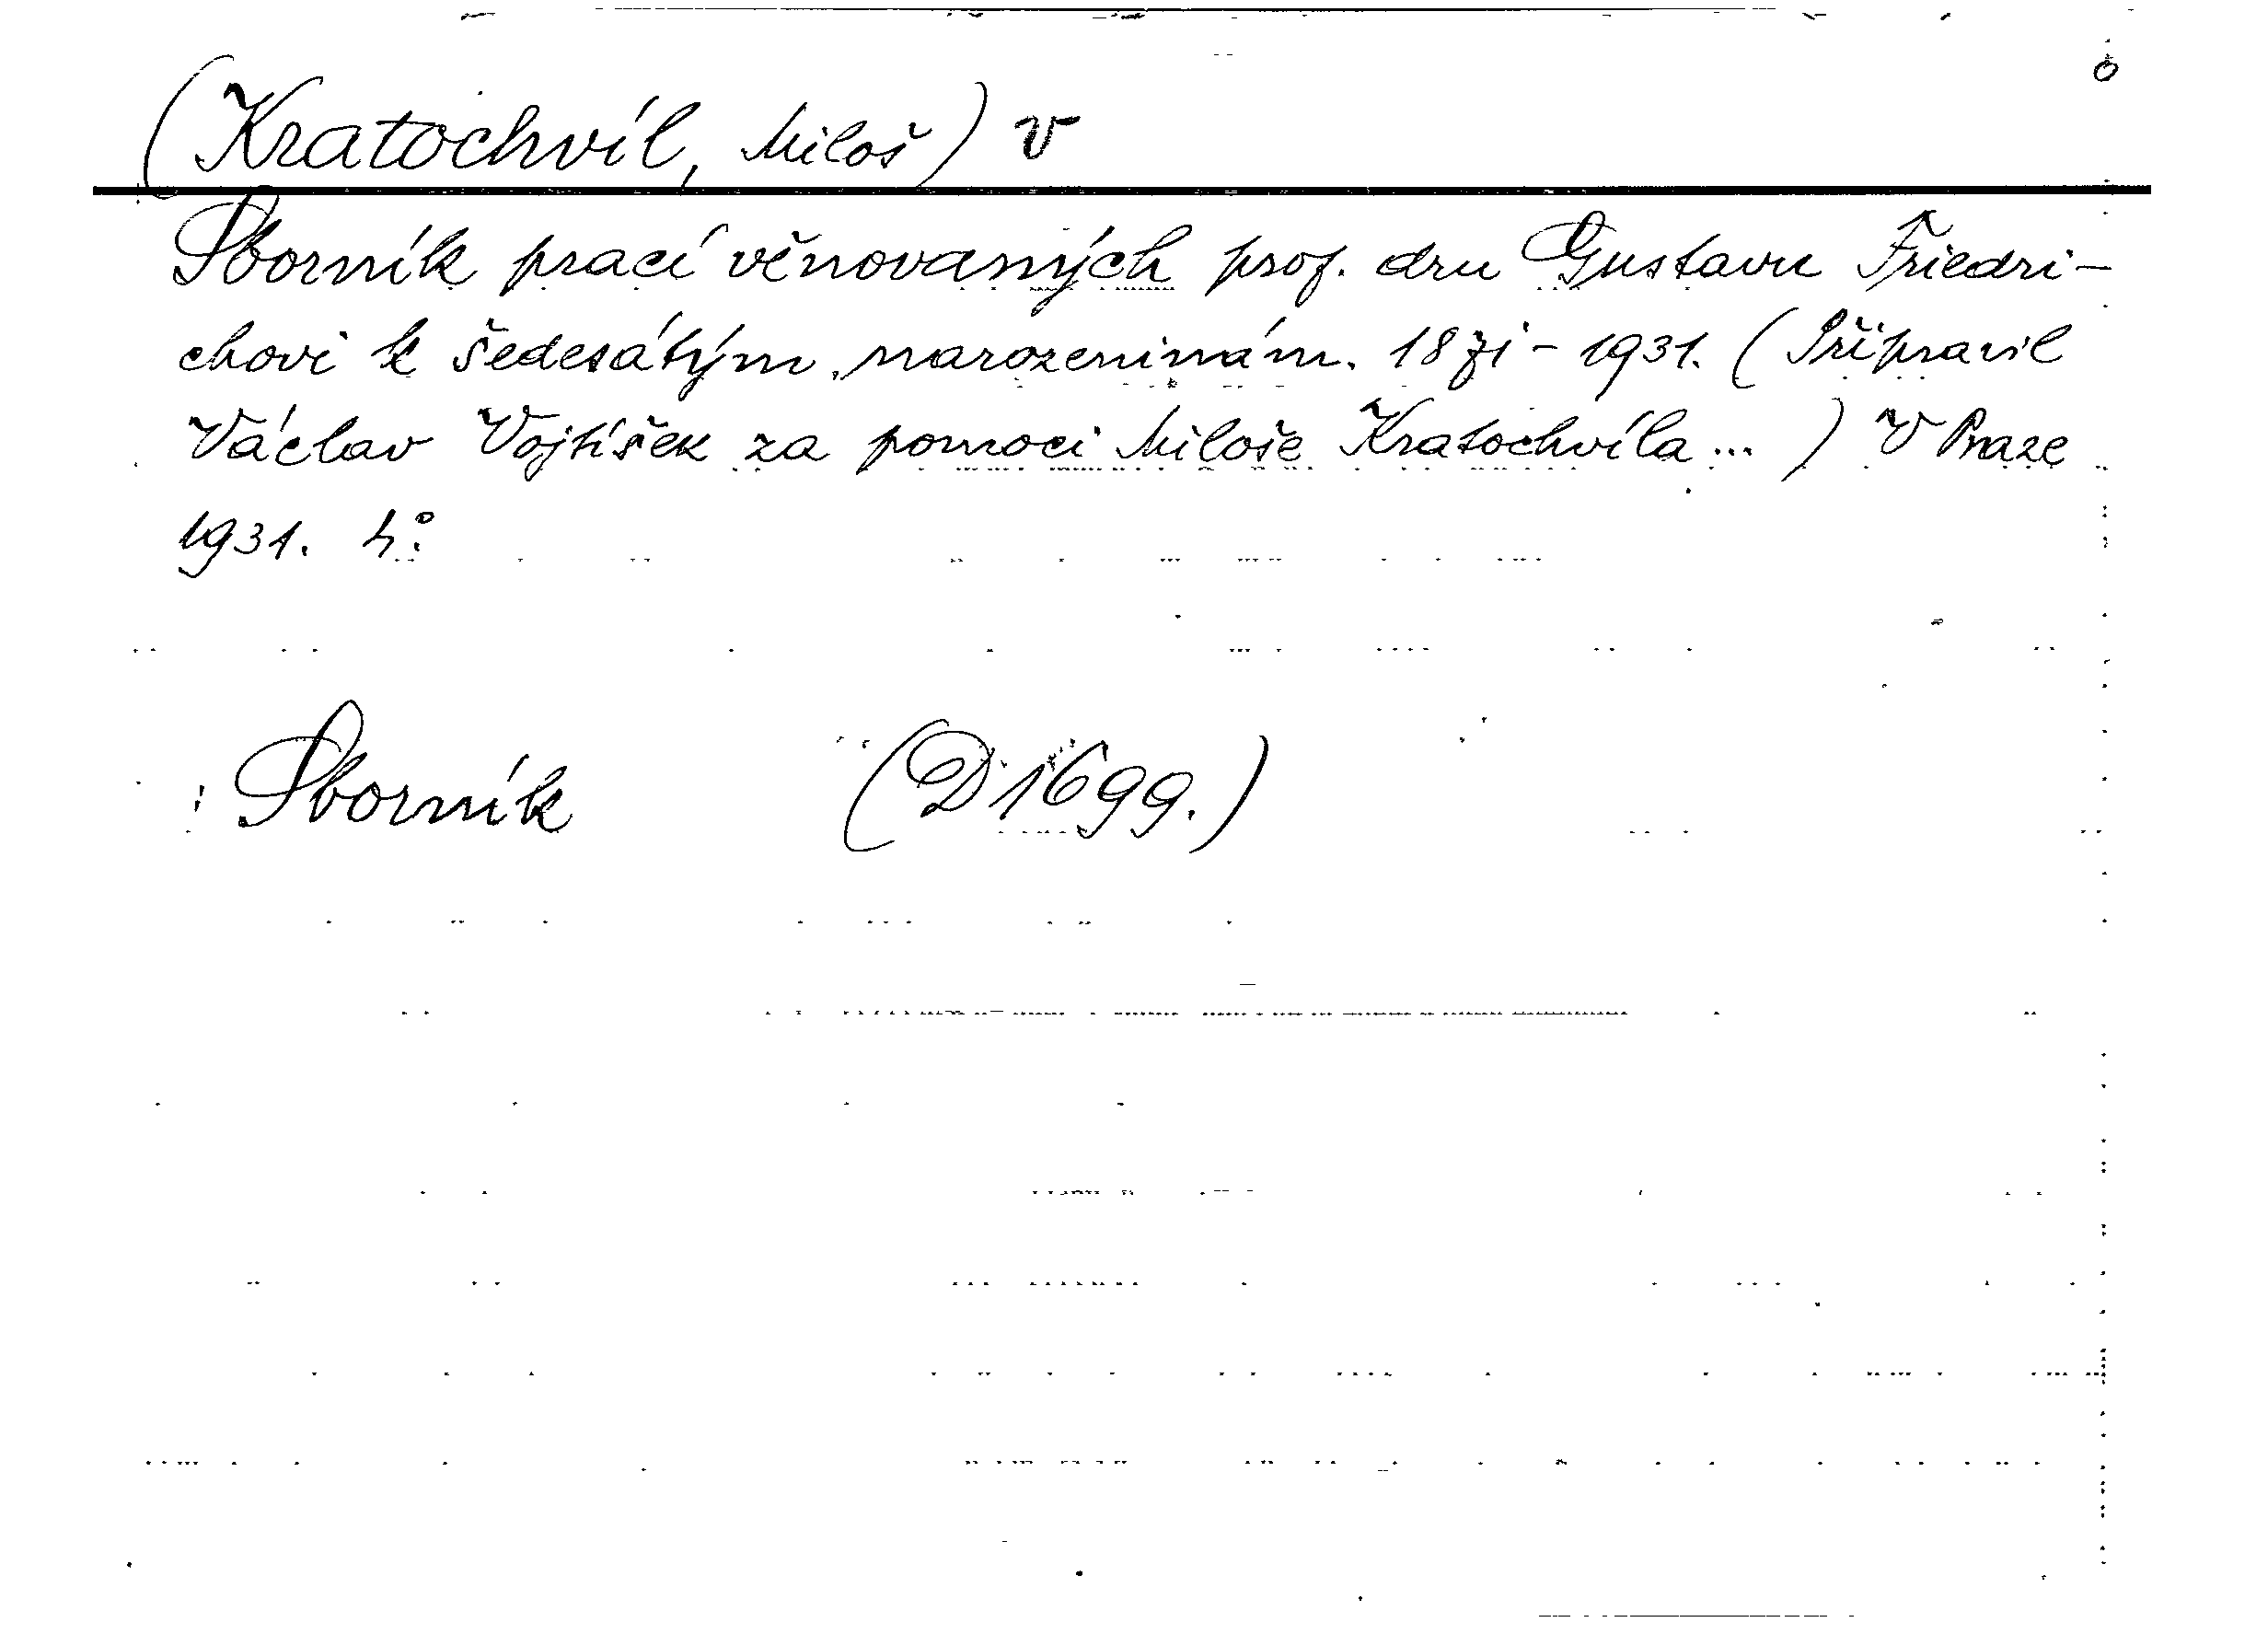 (Kratochvíl, Miloš) v
Sborník prací věnovaných prof. dru Gustavu Friedri-
chovi k šedesátým narozeninám. 1871 - 1931. (Připravil
Václav Vojtíšek za pomoci Miloše Kratochvíla...) V Praze
1931. 4°.
Sborník (D 1699.)